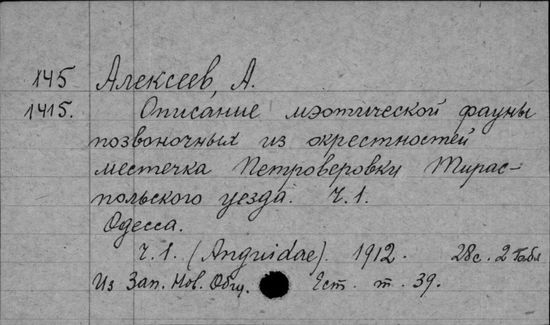 145 Алексеев, А.
1415. Описание мэотической фауны
позвоночных из окрестностей
местечка Петроверовки Тирас-
польского уезда. Ч. 1.
Одесса.
Ч. 1. (Anguidae). 1912. 28с. 2 табл
Из Зап. Нов. Общ. Ест. т. 39.